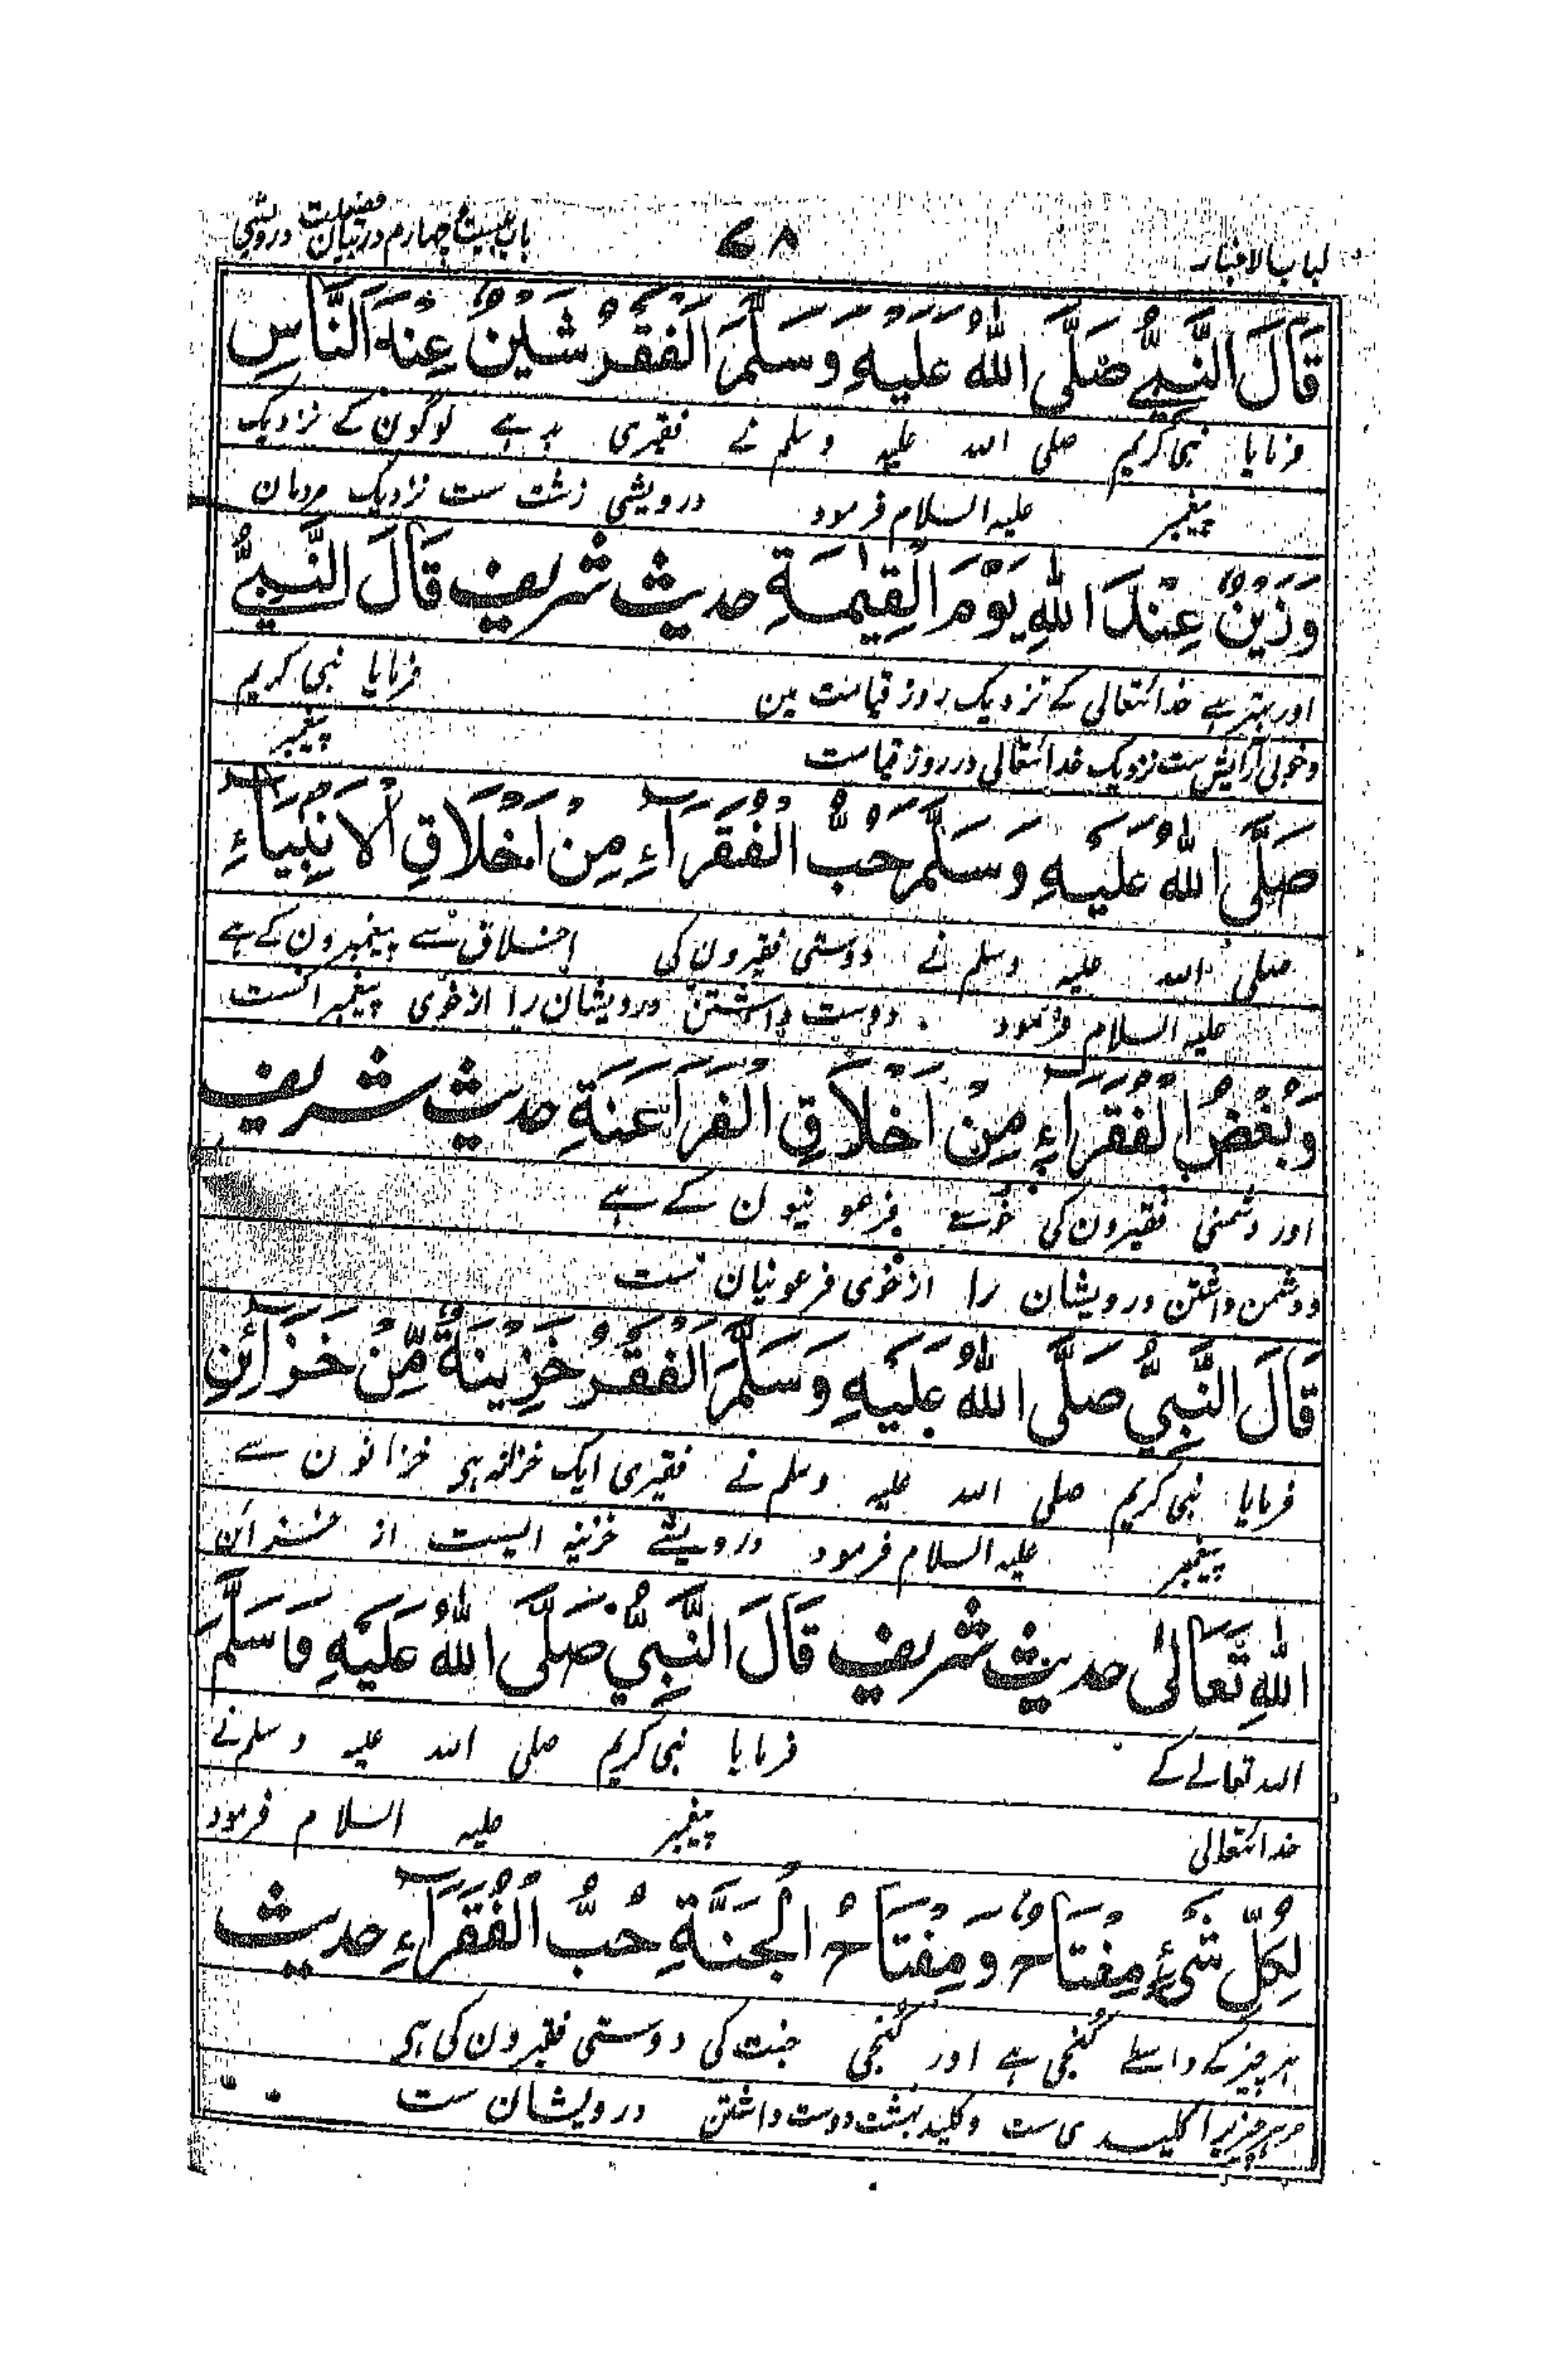 لباب الاخبار
۷۸
باب بیست و چهارم در بیان فضیلت درویشی
قَالَ النَّبِيُّ صَلَّى اللهُ عَلَيْهِ وَسَلَّمَ اَلْفَقْرُ شَيْنٌ عِنْدَ النَّاسِ
فرمایا نبی کریم صلی اللہ علیہ وسلم نے فقیری بد ہے لوگون کے نزدیک
پیغمبر علیہ السلام فرمود درویشی زشت ست نزدیک مردمان
وَزَيْنٌ عِنْدَ اللهِ يَوْمَ الْقِيٰمَةِ حدیث شریف قَالَ النَّبِيُّ
اور بہتر ہے خدائتعالی کے نزدیک روز قیامت مین فرمایا نبی کریم
وخوبی آرایش ست نزدیک خدائتعالی در روز قیامت پیغمبر
صَلَّى اللهُ عَلَيْهِ وَسَلَّمَ حُبُّ الْفُقَرَآءِ مِنْ اَخْلَاقِ الْاَنْبِيَآءِ
صلی اللہ علیہ وسلم نے دوستی فقیرون کی اخلاق سے پیغمبرون کے ہے
علیہ السلام فرمود دوست داشتن درویشان را از خوی پیغمبرانست
وَبُغْضُ الْفُقَرَآءِ مِنْ اَخْلَاقِ الْفَرَاعَنَةِ حدیث شریف
اور دشمنی فقیرون کی خو سے فرعونیون کے ہے
ودشمن داشتن درویشان را از خوی فرعونیان ست
قَالَ النَّبِيُّ صَلَّى اللهُ عَلَيْهِ وَسَلَّمَ اَلْفَقْرُ خَزِيْنَةٌ مِّنْ خَزَآئِنِ
فرمایا نبی کریم صلی اللہ علیہ وسلم نے فقیری ایک خزانہ ہی خزانون سے
پیغمبر علیہ السلام فرمود درویشے خزینہ ایست از خزائن
اللهِ تَعَالٰى حدیث شریف قَالَ النَّبِيُّ صَلَّى اللهُ عَلَيْهِ وَسَلَّمَ
اللہ تعالے کے فرمایا نبی کریم صلی اللہ علیہ وسلم نے
خدائتعالی پیغمبر علیہ السلام فرمود
لِكُلِّ شَيْءٍ مِفْتَاحٌ وَمِفْتَاحُ الْجَنَّةِ حُبُّ الْفُقَرَآءِ حدیث
ہر چیز کے واسطے کُنجی ہے اور کُنجی جنت کی دوستی فقیرون کی ہی
مر ہر چیز را کلیدی ست وکلید بہشت دوست داشتن درویشان ست